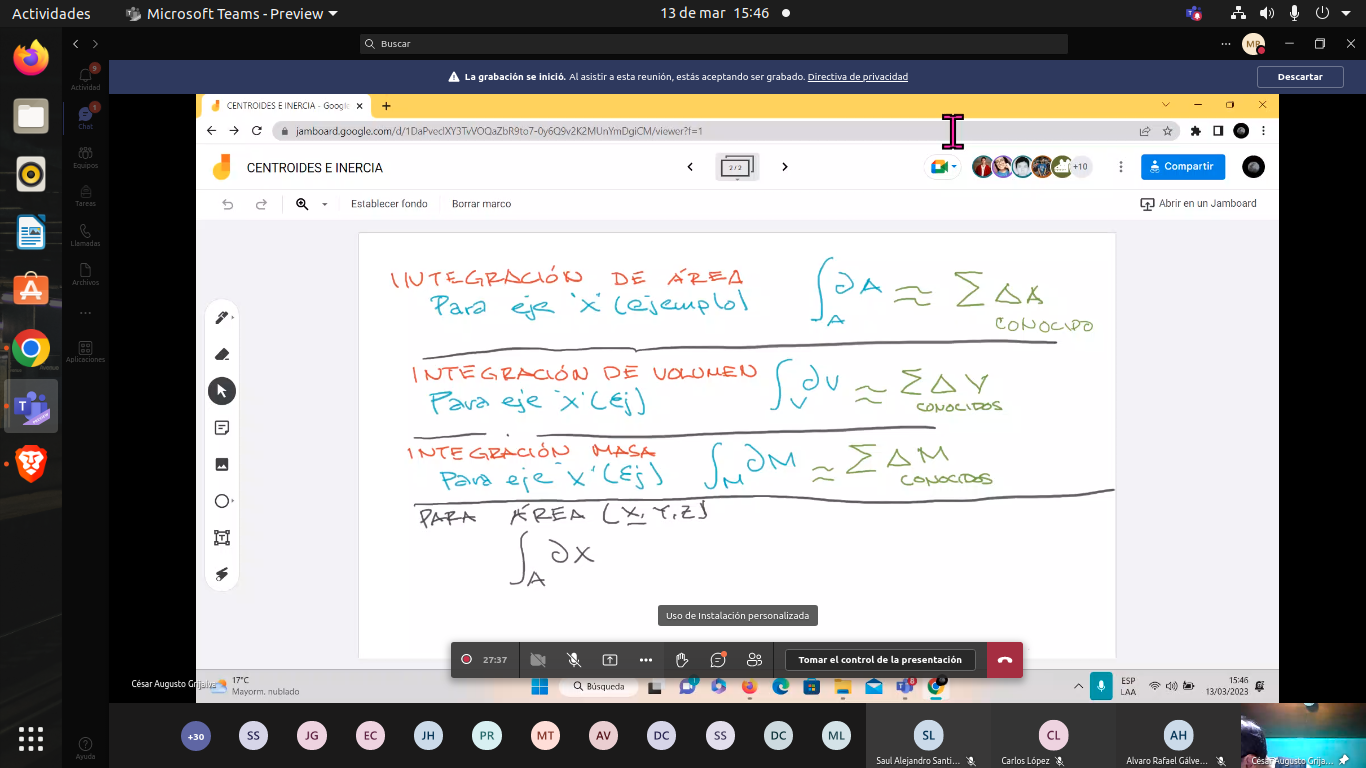 Actividades
Microsoft Teams - Preview
13 de mar 15:46
Buscar
MR
9
Actividad
1
Chat
Equipos
Tareas
Llamadas
Archivos
Aplicaciones
Ayuda
La grabación se inició. Al asistir a esta reunión, estás aceptando ser grabado. Directiva de privacidad
Descartar
CENTROIDES E INERCIA - Google
jamboard.google.com/d/1DaPvecIXY3TvVOQaZbR9to7-0y6Q9v2K2MUnYmDgiCM/viewer?f=1
CENTROIDES E INERCIA
2 / 2
+10
Compartir
Establecer fondo
Borrar marco
Abrir en un Jamboard
INTEGRACIÓN DE ÁREA
Para eje "x" (ejemplo)
∫A ∂A ≈ Σ ΔA
CONOCIDO
INTEGRACIÓN DE VOLUMEN
Para eje "x" (Ej)
∫V ∂V ≈ Σ ΔV
CONOCIDOS
INTEGRACIÓN MASA
Para eje "x" (Ej)
∫M ∂M ≈ Σ ΔM
CONOCIDOS
PARA ÁREA (X, Y, Z)
∫A ∂X
Uso de Instalación personalizada
27:37
Tomar el control de la presentación
César Augusto Grijalva
17°C
Mayorm. nublado
Búsqueda
ESP
LAA
15:46
13/03/2023
+30
SS
JG
EC
JH
PR
MT
AV
DC
SS
DC
ML
SL
Saul Alejandro Santi...
CL
Carlos López
AH
Alvaro Rafael Gálve...
César Augusto Grija...